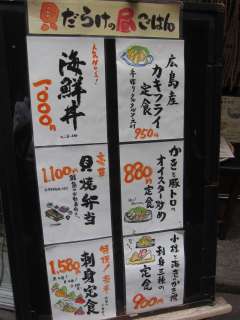 貝だらけの昼ごはん
広島産
カキフライ
定食
950円
海鮮丼
1000円
かきと豚トロの
オイスター炒め
定食
880円
貝焼弁当
1,100円
小柱と海老かき揚
刺身三種の
定食
900円
特撰!
刺身定食
1,580円